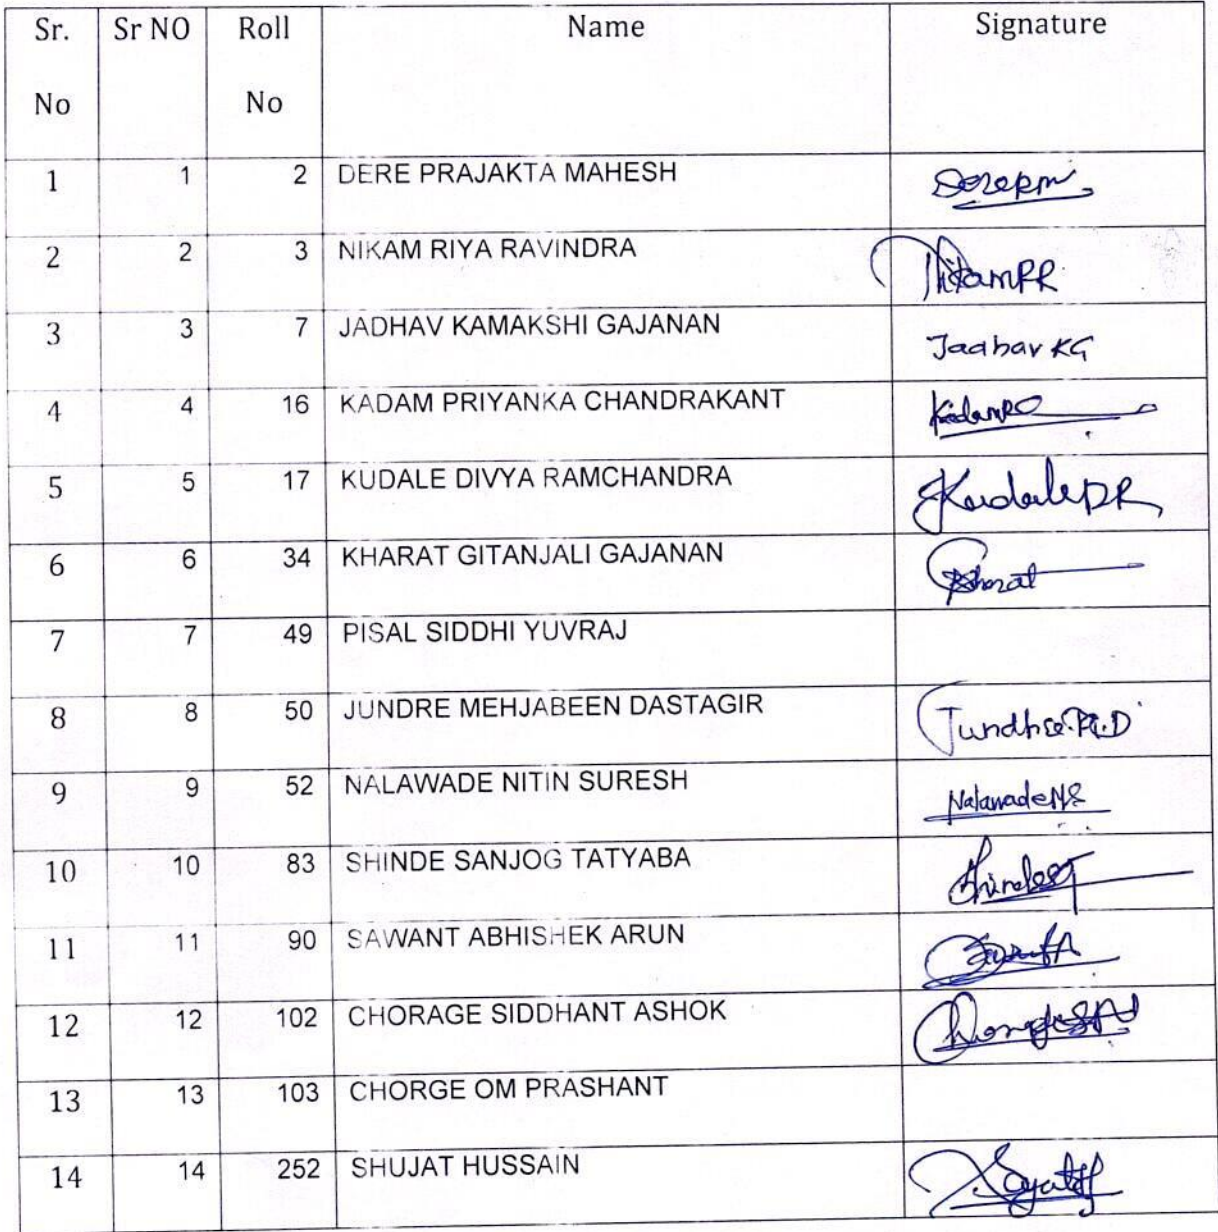 Sr. No Sr NO Roll No Name Signature
1 1 2 DERE PRAJAKTA MAHESH Derepm
2 2 3 NIKAM RIYA RAVINDRA NikamRR
3 3 7 JADHAV KAMAKSHI GAJANAN Jadhav KG
4 4 16 KADAM PRIYANKA CHANDRAKANT KadamPC
5 5 17 KUDALE DIVYA RAMCHANDRA KudaleDR
6 6 34 KHARAT GITANJALI GAJANAN Kharat
7 7 49 PISAL SIDDHI YUVRAJ
8 8 50 JUNDRE MEHJABEEN DASTAGIR
9 9 52 NALAWADE NITIN SURESH NalawadeNS
10 10 83 SHINDE SANJOG TATYABA ShindeST
11 11 90 SAWANT ABHISHEK ARUN
12 12 102 CHORAGE SIDDHANT ASHOK
13 13 103 CHORGE OM PRASHANT
14 14 252 SHUJAT HUSSAIN